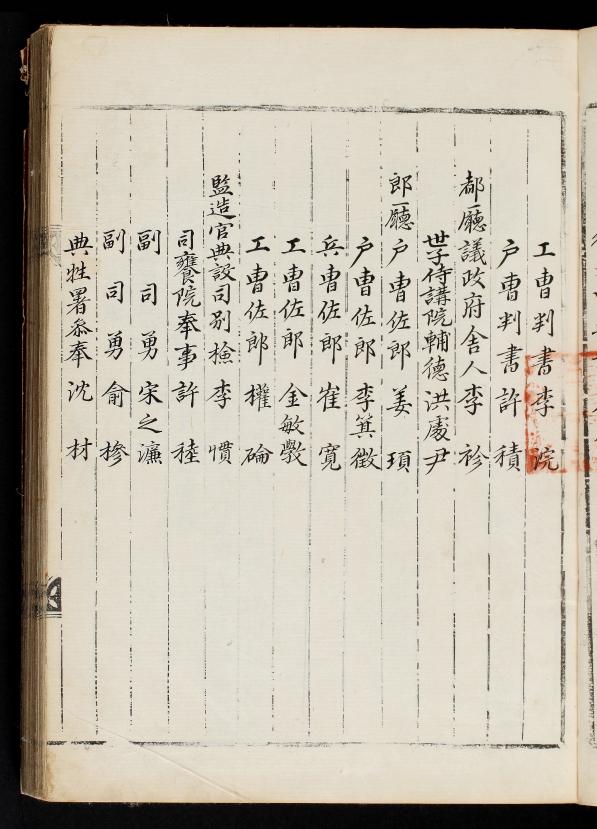 工曹判書李 浣
戶曹判書許 積
都廳議政府舍人李 袗
世子侍講院輔德洪處尹
郎廳戶曹佐郎 姜 頊
戶曹佐郎 李箕徵
兵曹佐郎 崔 寬
工曹佐郎 金敏斆
工曹佐郎 權 碖
監造官典設司別檢李 慣
司饔院奉事許 稑
副司勇宋之濂
副司勇俞 椮
典牲署叅奉沈 材